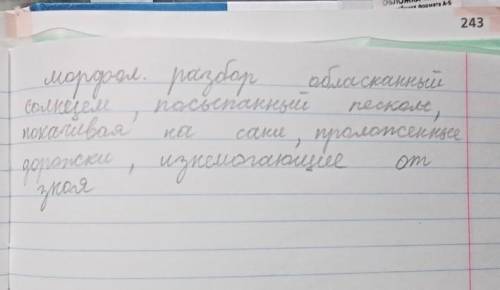 ОБЛОЖКА
формата А-5
243
морфол. разбор обласканный
солнцем, посыпанный песком,
покачивая на сани, проложенные
дорожки, изнемогающие от
зноя